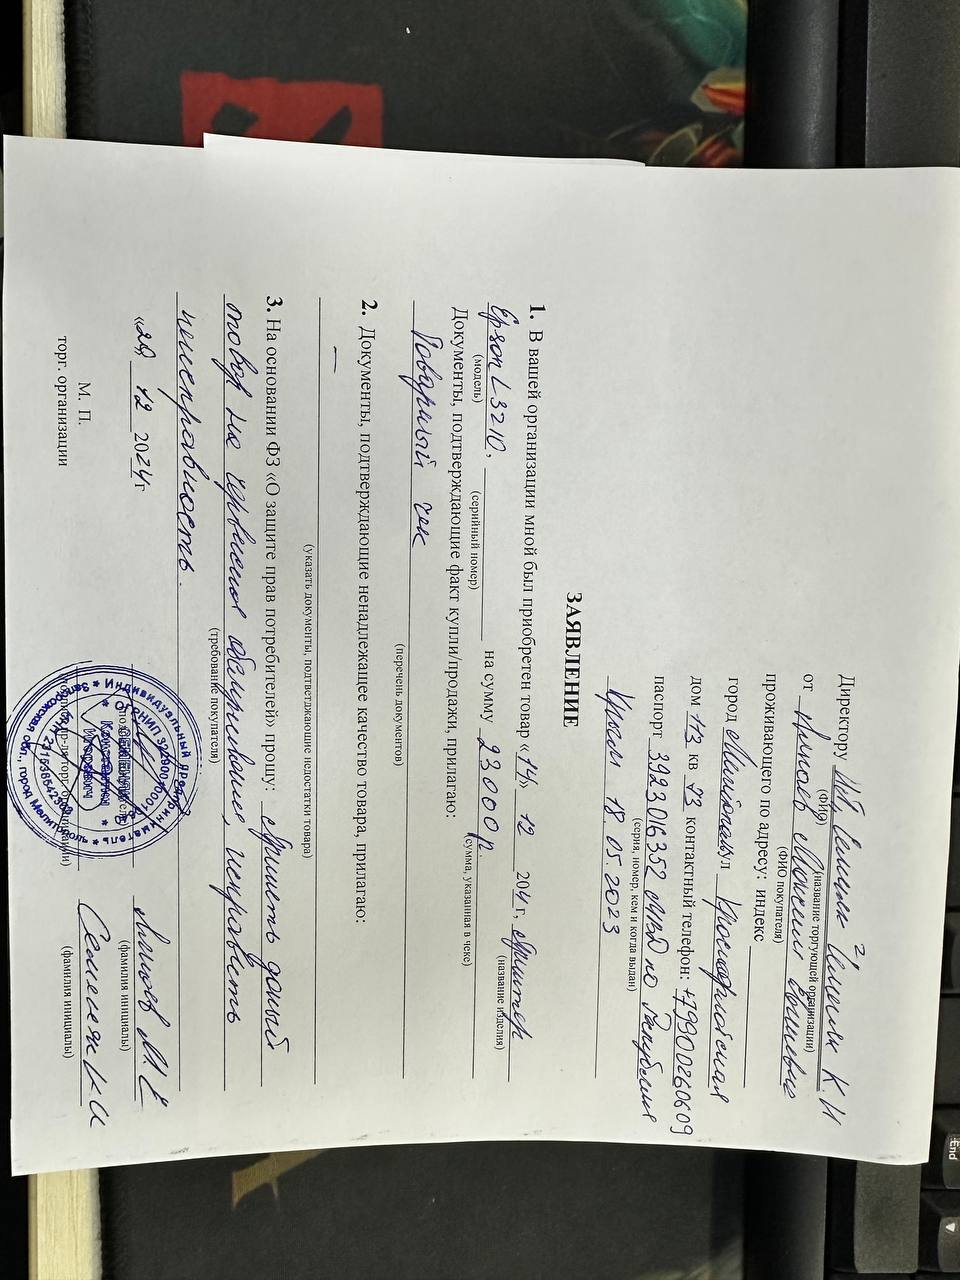 Директору ИП К. И
(название торгующей организации)
(ФИО)
от Максим
(ФИО покупателя)
проживающего по адресу: индекс
город ул
дом 113 кв 93 контактный телефон: +79900260609
паспорт 3923016352 МВД по Республике
(серия, номер, кем и когда выдан)
Крым 18.05.2023
ЗАЯВЛЕНИЕ
1. В вашей организации мной был приобретен товар «14» 12 204 г, принтер
(название изделия)
Epson L3210, на сумму 23000 р.
(модель) (серийный номер) (сумма, указанная в чеке)
Документы, подтверждающие факт купли/продажи, прилагаю:
Товарный чек
(перечень документов)
2. Документы, подтверждающие ненадлежащее качество товара, прилагаю:
—
(указать документы, подтветджающие недостатки товара)
3. На основании ФЗ «О защите прав потребителей» прошу: Принять данный
товар на сервисное обслуживание, исправить
(требование покупателя)
неисправность.
«29» 12 2024 г
(фамилия инициалы)
М. П.
торг. организации
(фамилия инициалы)
Индивидуальный предприниматель
Запорожская обл., город Мелитополь